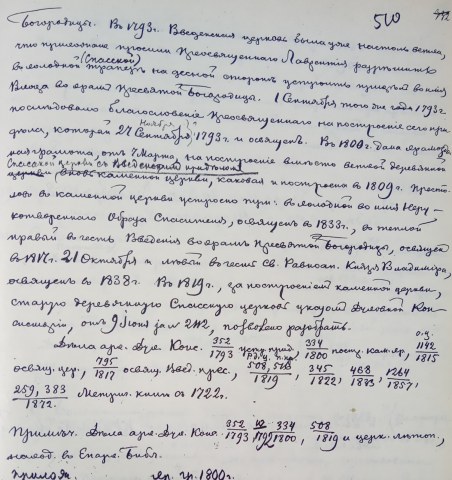 510
Богородицы. Въ 1793г. Введенская церковь была уже настолько ветха,
что прихожане просили Преосвященнаго Лаврентія разрешить
(Спасской)
в холодной трапезѣ на десной сторонѣ устроить придѣлъ во имя
Входа во храмъ Пресвятой Богородицы. 1 Сентября того же года 1793 г
последовало благословеніе Преосвященнаго на построеніе сего при
Ноября
дѣла, который 24 Сентября 1793 г и освященъ. В 1800 г. дана
грамота, отъ 7 Марта, на построеніе вмѣсто ветхой деревянной
Спасской церкви с Введенскимъ придѣломъ
церкви вновь каменной церкви, каковая и построена в 1809 г. Прест-
ловъ въ каменной церкви устроено три: в холодной во имя Неру-
котвореннаго Образа Спасителя, освященъ в 1833 г., въ теплой
правый в честь Введенія во храмъ Пресвятой Богородицы, освященъ
в 1817 г. 21 Октября и лѣвый в честь Св. Равноап. Князя Владиміра,
освященъ въ 1838 г. В 1819 г., за построеніемъ каменной церкви,
старую деревянную Спасскую церковь указомъ Духовной Кон-
систоріи, отъ 9 Іюня за № 2112, позволено разобрать.
Дѣла арх. Дух. Конс. 352/1793 устр. прид., 334/1800 постр. кам. хр., 1142/1815
освящ. цер., 795/1817 освящ. Введ. прес., 1819, 345/1822, 468/1833, 1264/1857,
259, 383/1872. Метрич. книги съ 1722 г.
Примѣч. Дѣла арх. Дух. Конс. 352/1793 334/1800, 508/1819 и церк. лѣтоп.,
наход. въ Епарх. Библ.
гр. 1800 г.